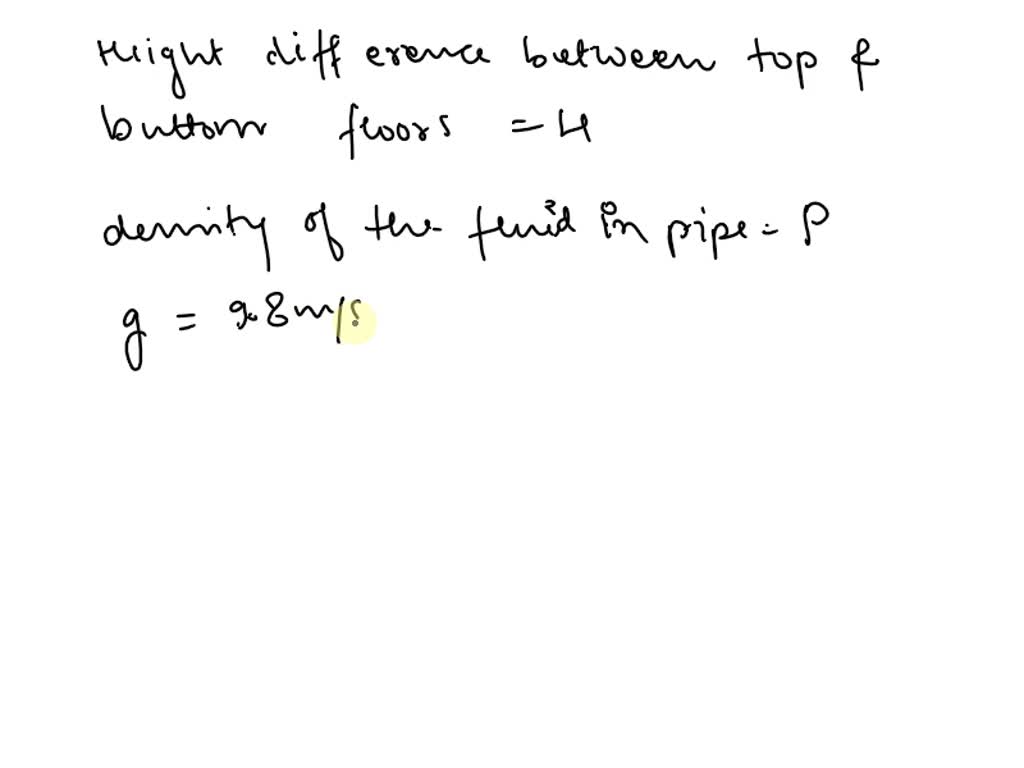 Height difference between top &
buttom floors = H
density of the fluid in pipe = ρ
g = 9.8 m/s